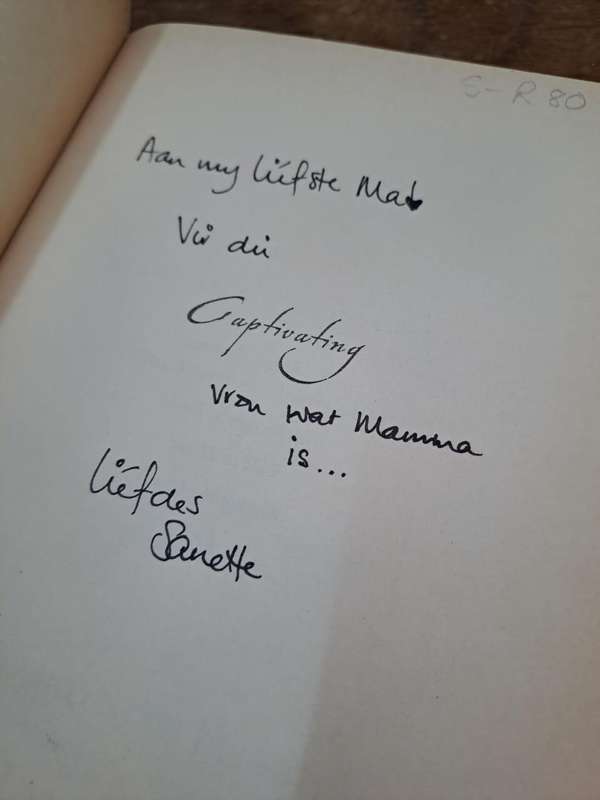 S-R 80
Aan my liefste Ma!
Vir die
Captivating
vrou wat Mamma
is...
liefdes
Sanette